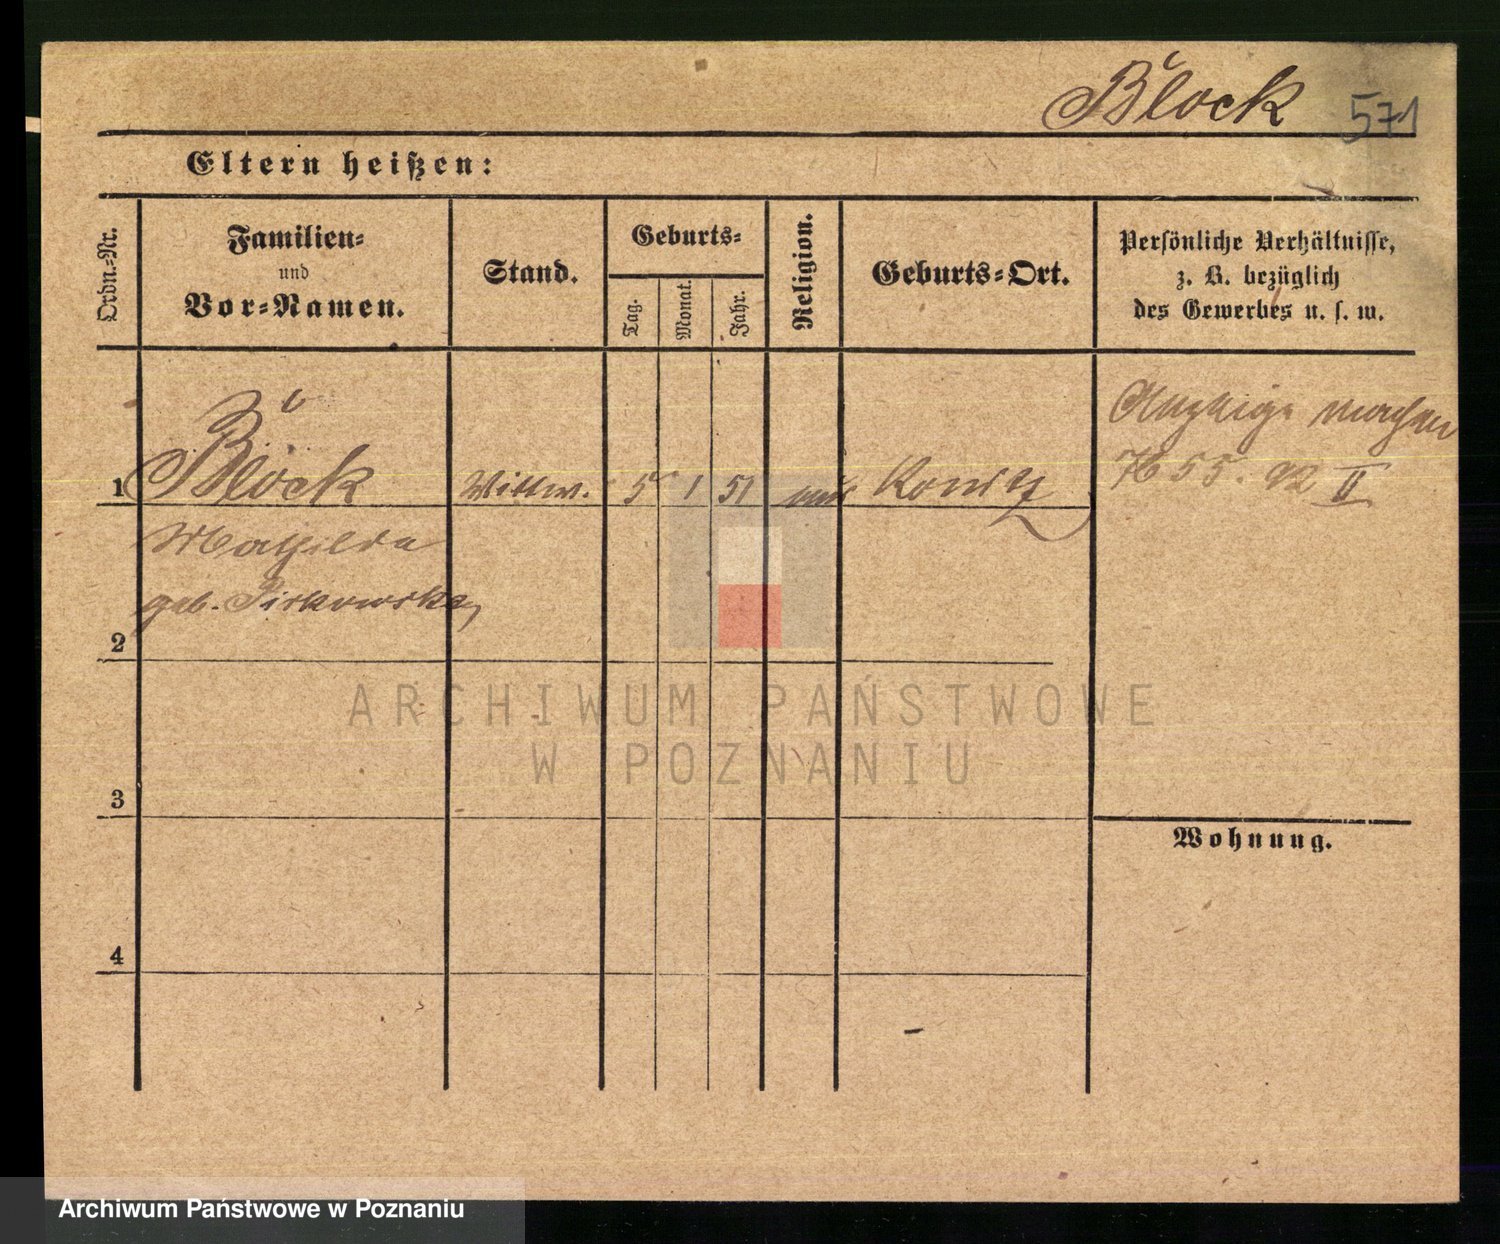 Block 571
Eltern heißen:
Ordn.-Nr.
Familien-
und
Vor-Namen.
Stand.
Geburts-
Tag.
Monat.
Jahr.
Religion.
Geburts-Ort.
Persönliche Verhältnisse,
z. B. bezüglich
des Gewerbes u. s. w.
1 Block Wittw. 5 1 51 Konitz
Mathilde
geb. Pirkowska
7655. 92 II
2
3
4
Wohnung.
ARCHIWUM PAŃSTWOWE
W POZNANIU
Archiwum Państwowe w Poznaniu